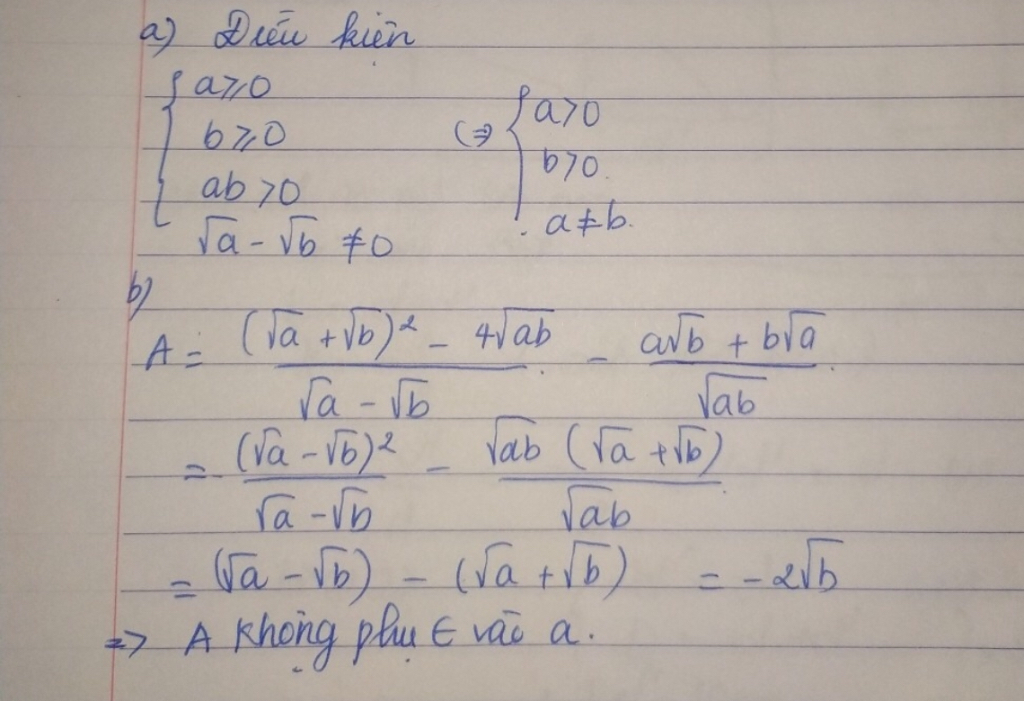 a) Điều kiện
{ a ⩾ 0
b ⩾ 0
ab > 0
√a - √b ≠ 0
(=> { a > 0
b > 0.
a ≠ b.
b)
A = ((√a + √b)² - 4√ab)/(√a - √b) - (a√b + b√a)/√ab
= (√a - √b)²/(√a - √b) - √ab (√a + √b)/√ab
= (√a - √b) - (√a + √b) = -2√b
=> A không phụ ∈ vào a.